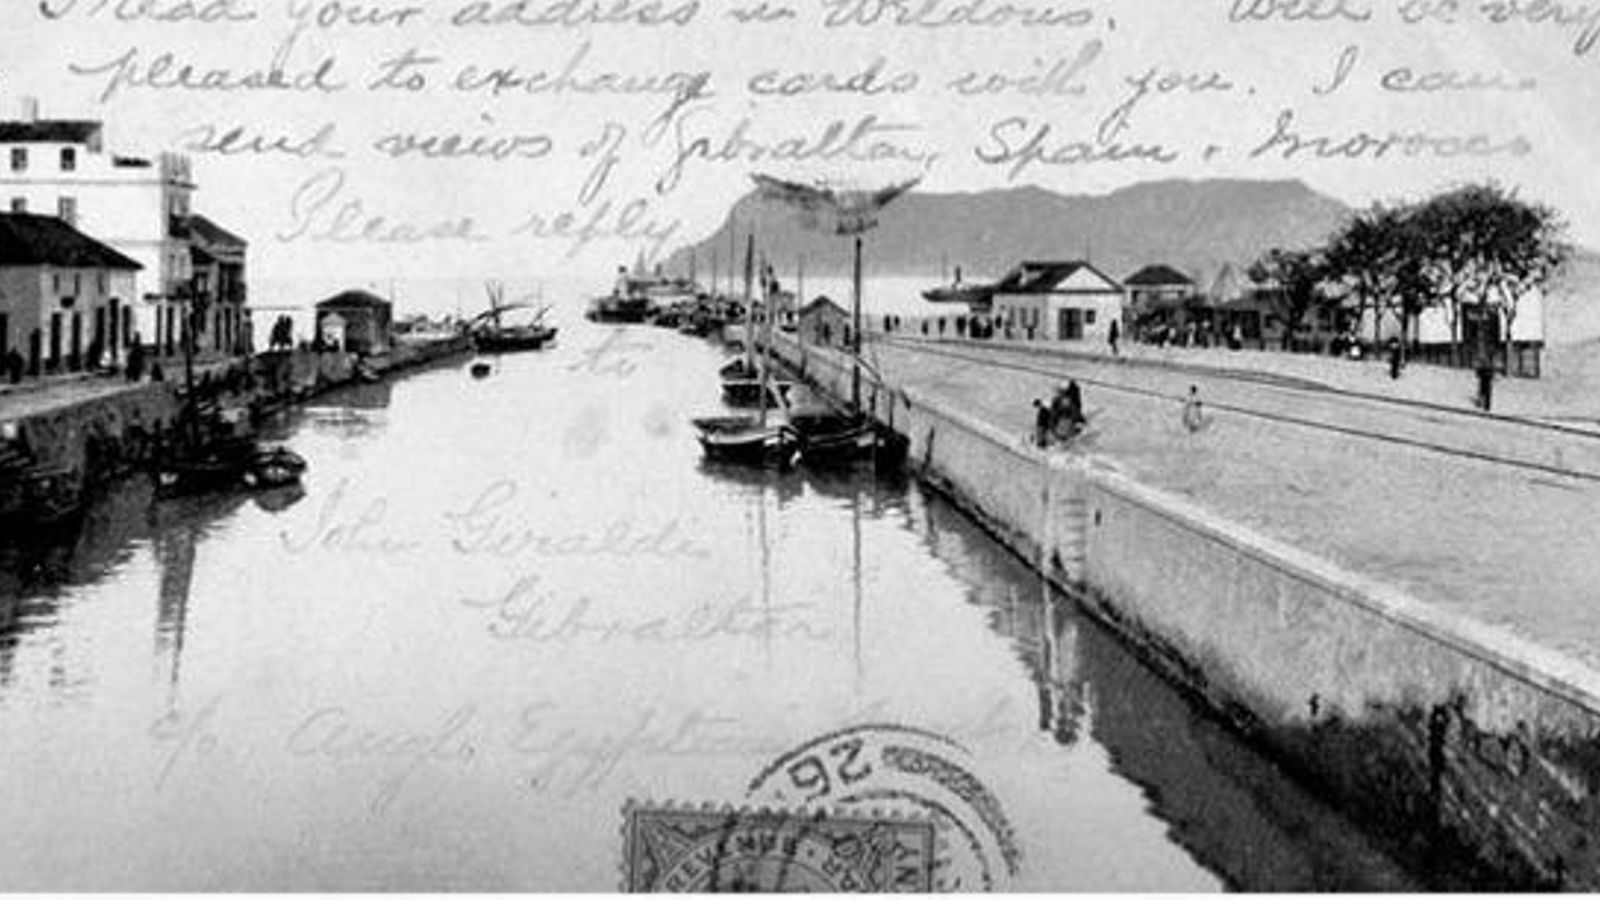 I read your address in Wildows. Will be very
pleased to exchange cards with you. I can
send views of Gibraltar, Spain & Morocco
Please reply
to
John Giraldi
Gibraltar
c/o Anglo Egyptian
26
REVENUE